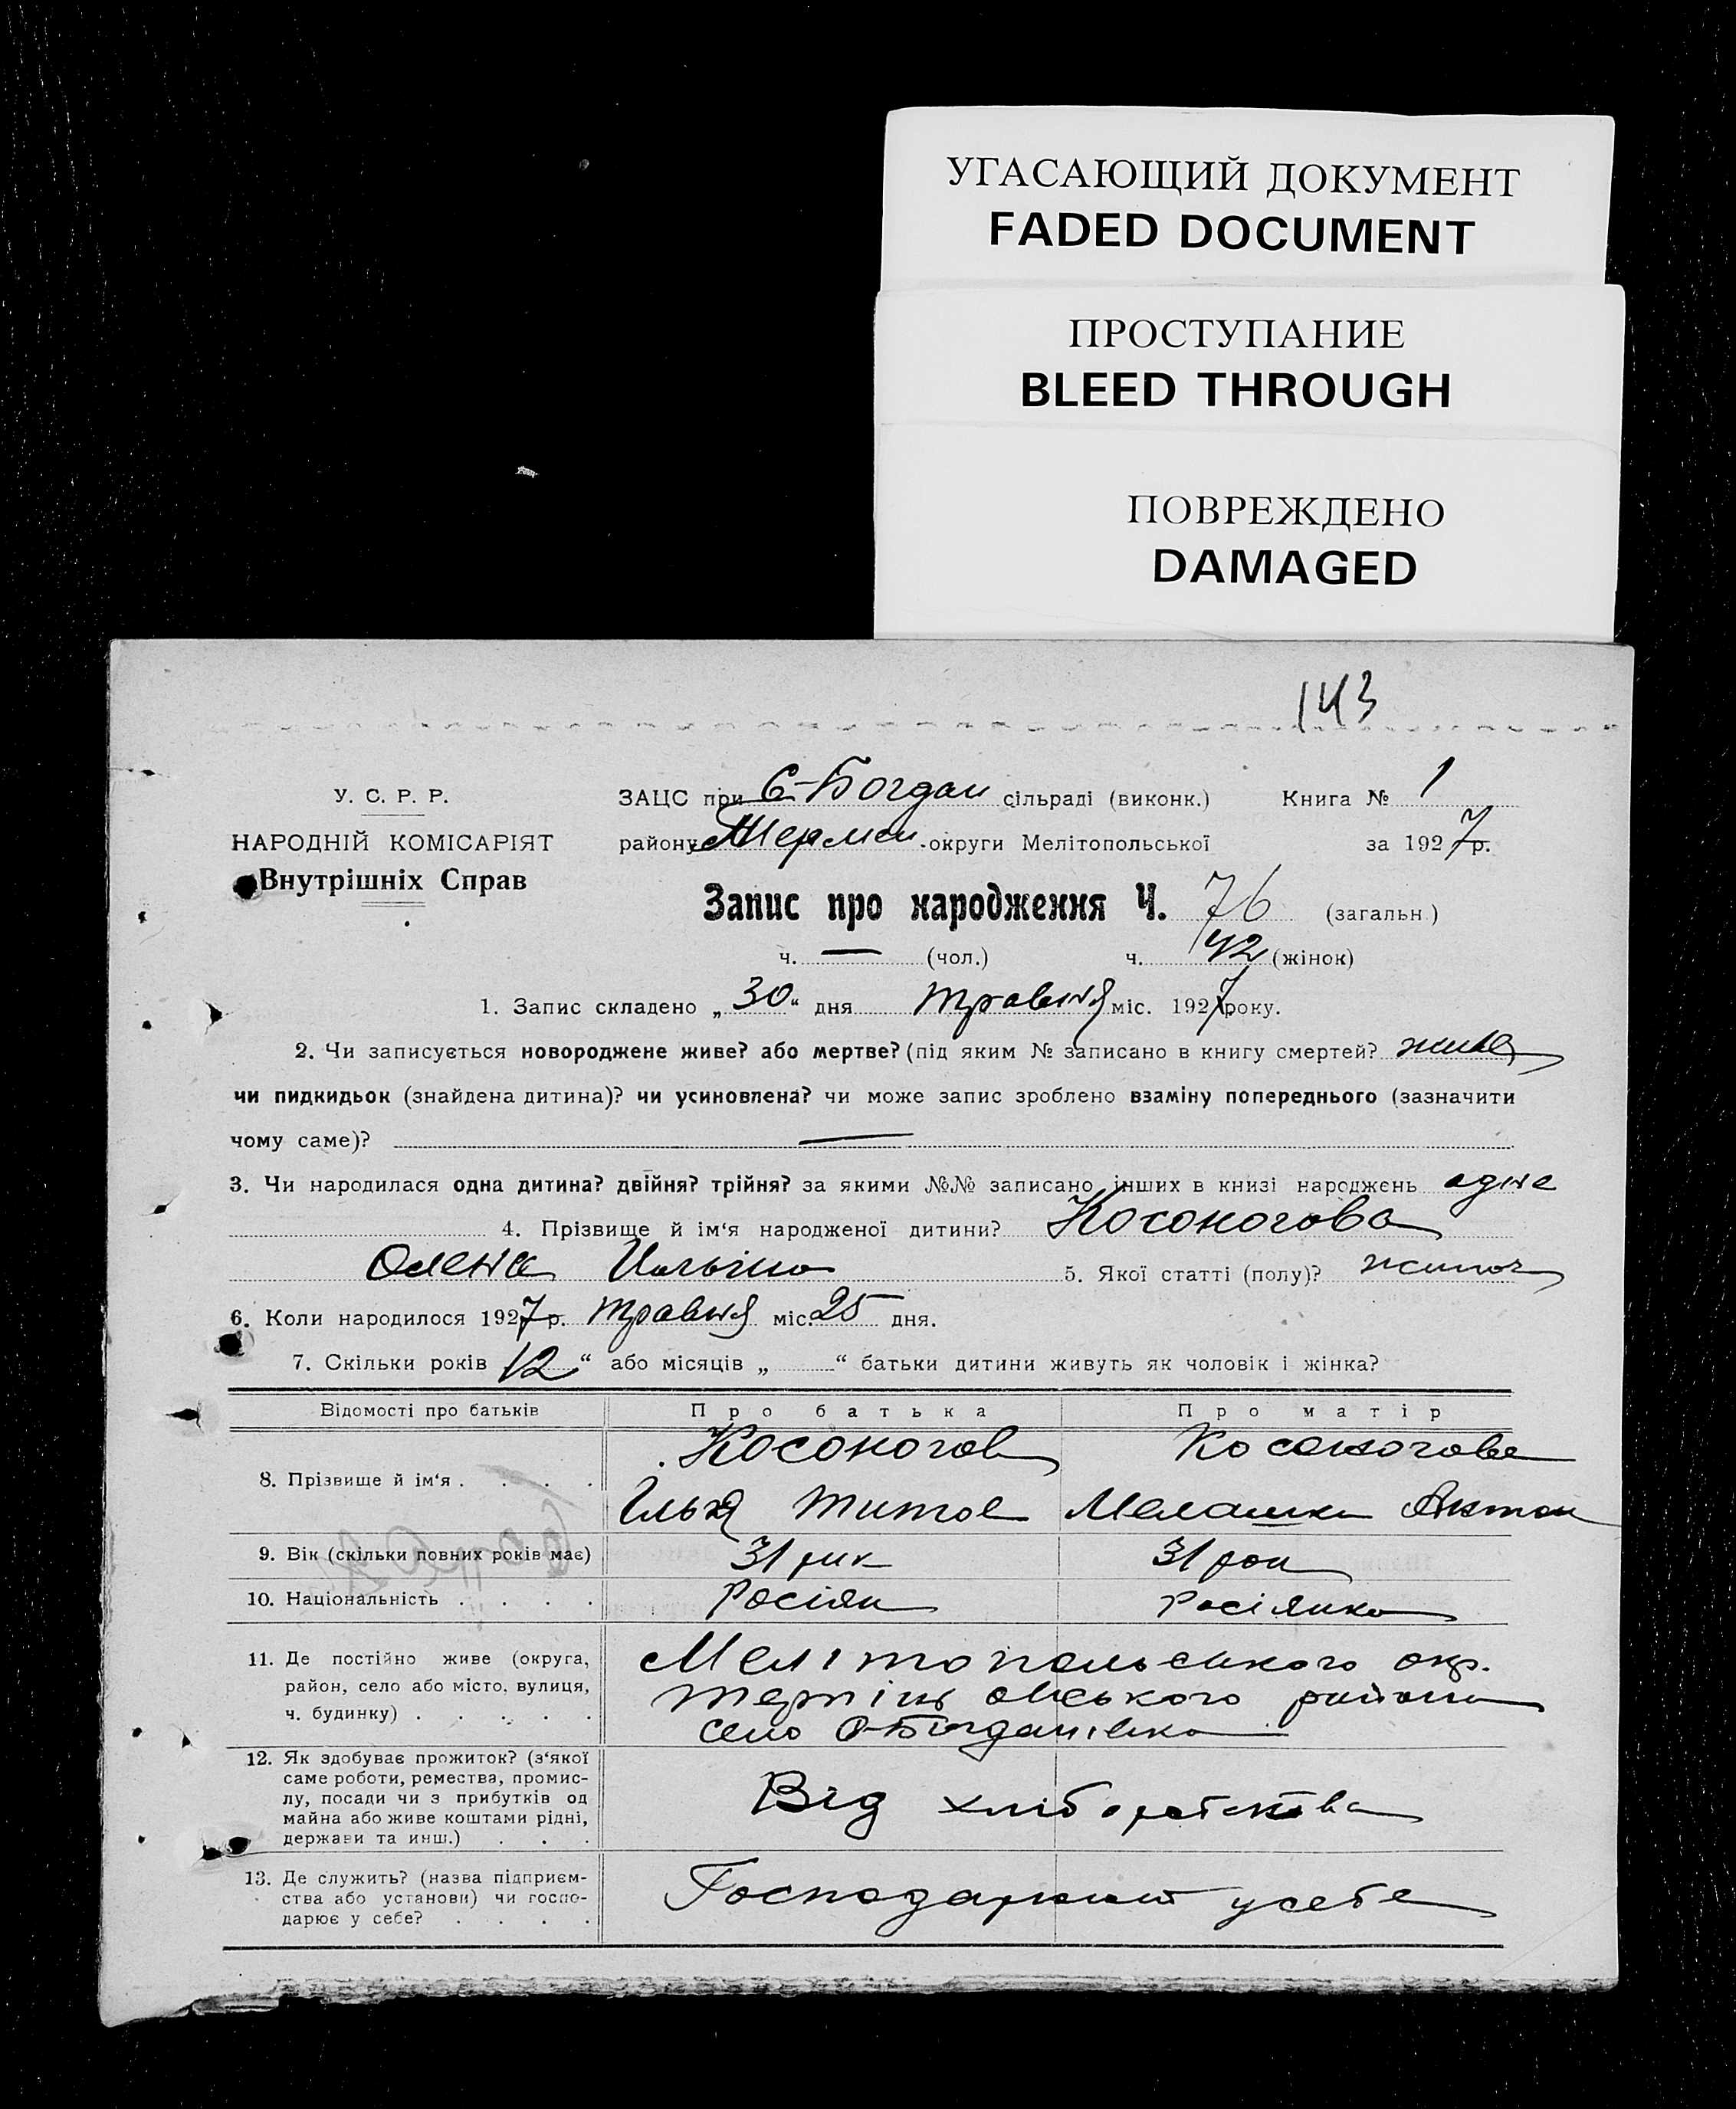 УГАСАЮЩИЙ ДОКУМЕНТ
FADED DOCUMENT
ПРОСТУПАНИЕ
BLEED THROUGH
ПОВРЕЖДЕНО
DAMAGED
143
У. С. Р. Р.
НАРОДНІЙ КОМІСАРІЯТ
Внутрішніх Справ
ЗАЦС при С-Богдан сільраді (виконк.) Книга № 1
району округи Мелітопольської за 1927 р.
Запис про народження Ч. 76 (загальн.)
ч. — (чол.) ч. 42 (жінок)
1. Запис складено „30“ дня травня міс. 1927 року.
2. Чи записується новороджене живе? або мертве? (під яким № записано в книгу смертей? живе
чи пидкидьок (знайдена дитина)? чи усиновлена? чи може запис зроблено взаміну попереднього (зазначити
чому саме)? —
3. Чи народилася одна дитина? двійня? трійня? за якими №№ записано інших в книзі народжень одна
4. Прізвище й ім'я народженої дитини? Косоногова
Олена 5. Якої статті (полу)? жиноч
6. Коли народилося 1927 р. травня міс. 25 дня.
7. Скільки років 12 “ або місяців „ “ батьки дитини живуть як чоловік і жінка?
Відомості про батьків Про батька Про матір
8. Прізвище й ім'я . . . . Косоногов Косоногова
Ілья Титов Мелашка Антон
9. Вік (скільки повних років має) 31 рик 31 рок
10. Національність . . . . Росіян Росіянка
11. Де постійно живе (округа, район, село або місто, вулиця, ч. будинку) . . . . .
Мелітопольського окр.
району
село Богданівка
12. Як здобуває прожиток? (з'якої
саме роботи, ремества, промис-
лу, посади чи з прибутків од
майна або живе коштами рідні,
держави та инш.) . . .
Від хліборобства
13. Де служить? (назва підприєм-
ства або установи) чи госпо-
дарює у себе? . . . .
Господарюют у себе